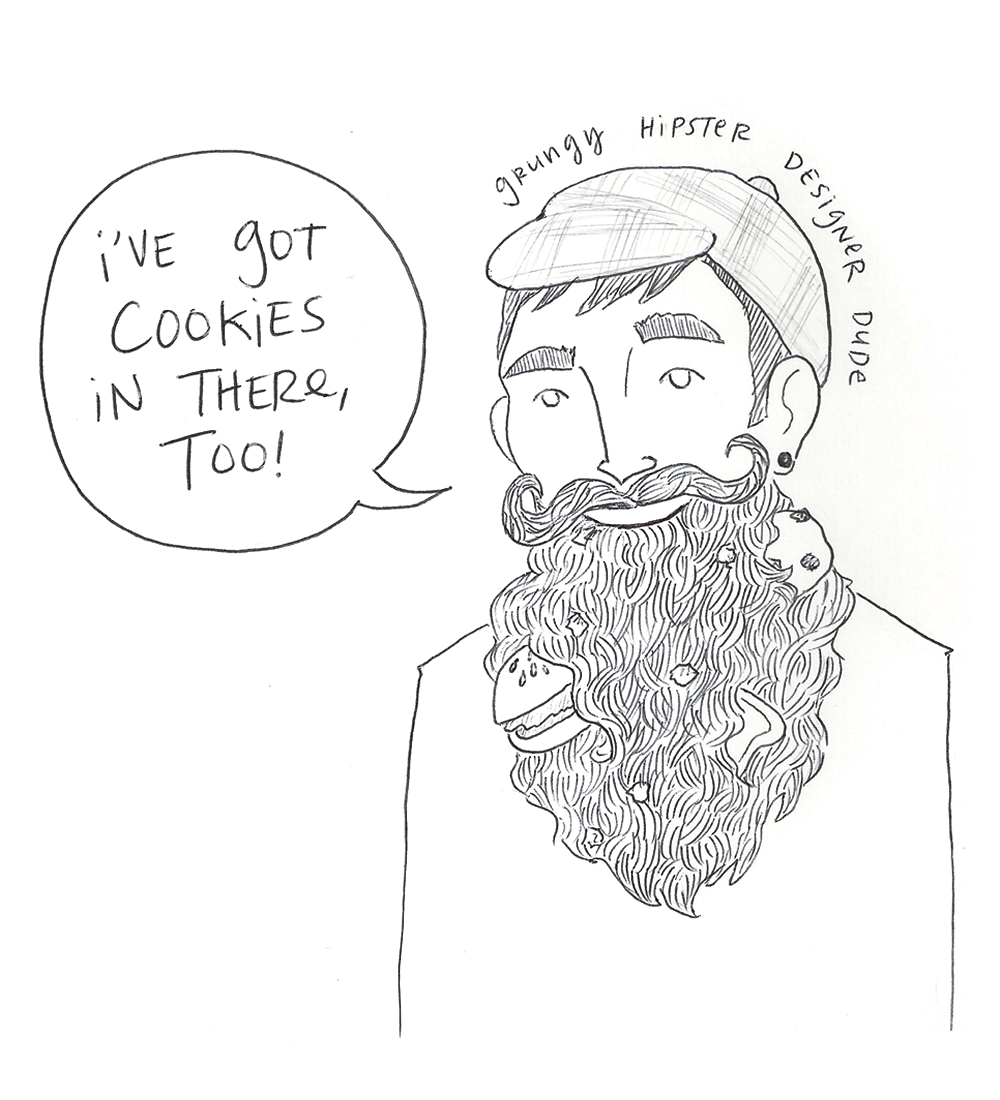 GRUNGY HiPSTER DESigNeR DUDe
i'VE GOT
COOKiES
iN THERe,
TOO!